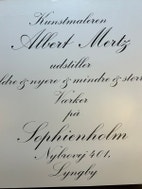 Kunstmaleren
Albert Mertz
udstiller
ldre & nyere & mindre & størr
Værker
på
Sophienholm
Nybrovej 401,
Lyngby